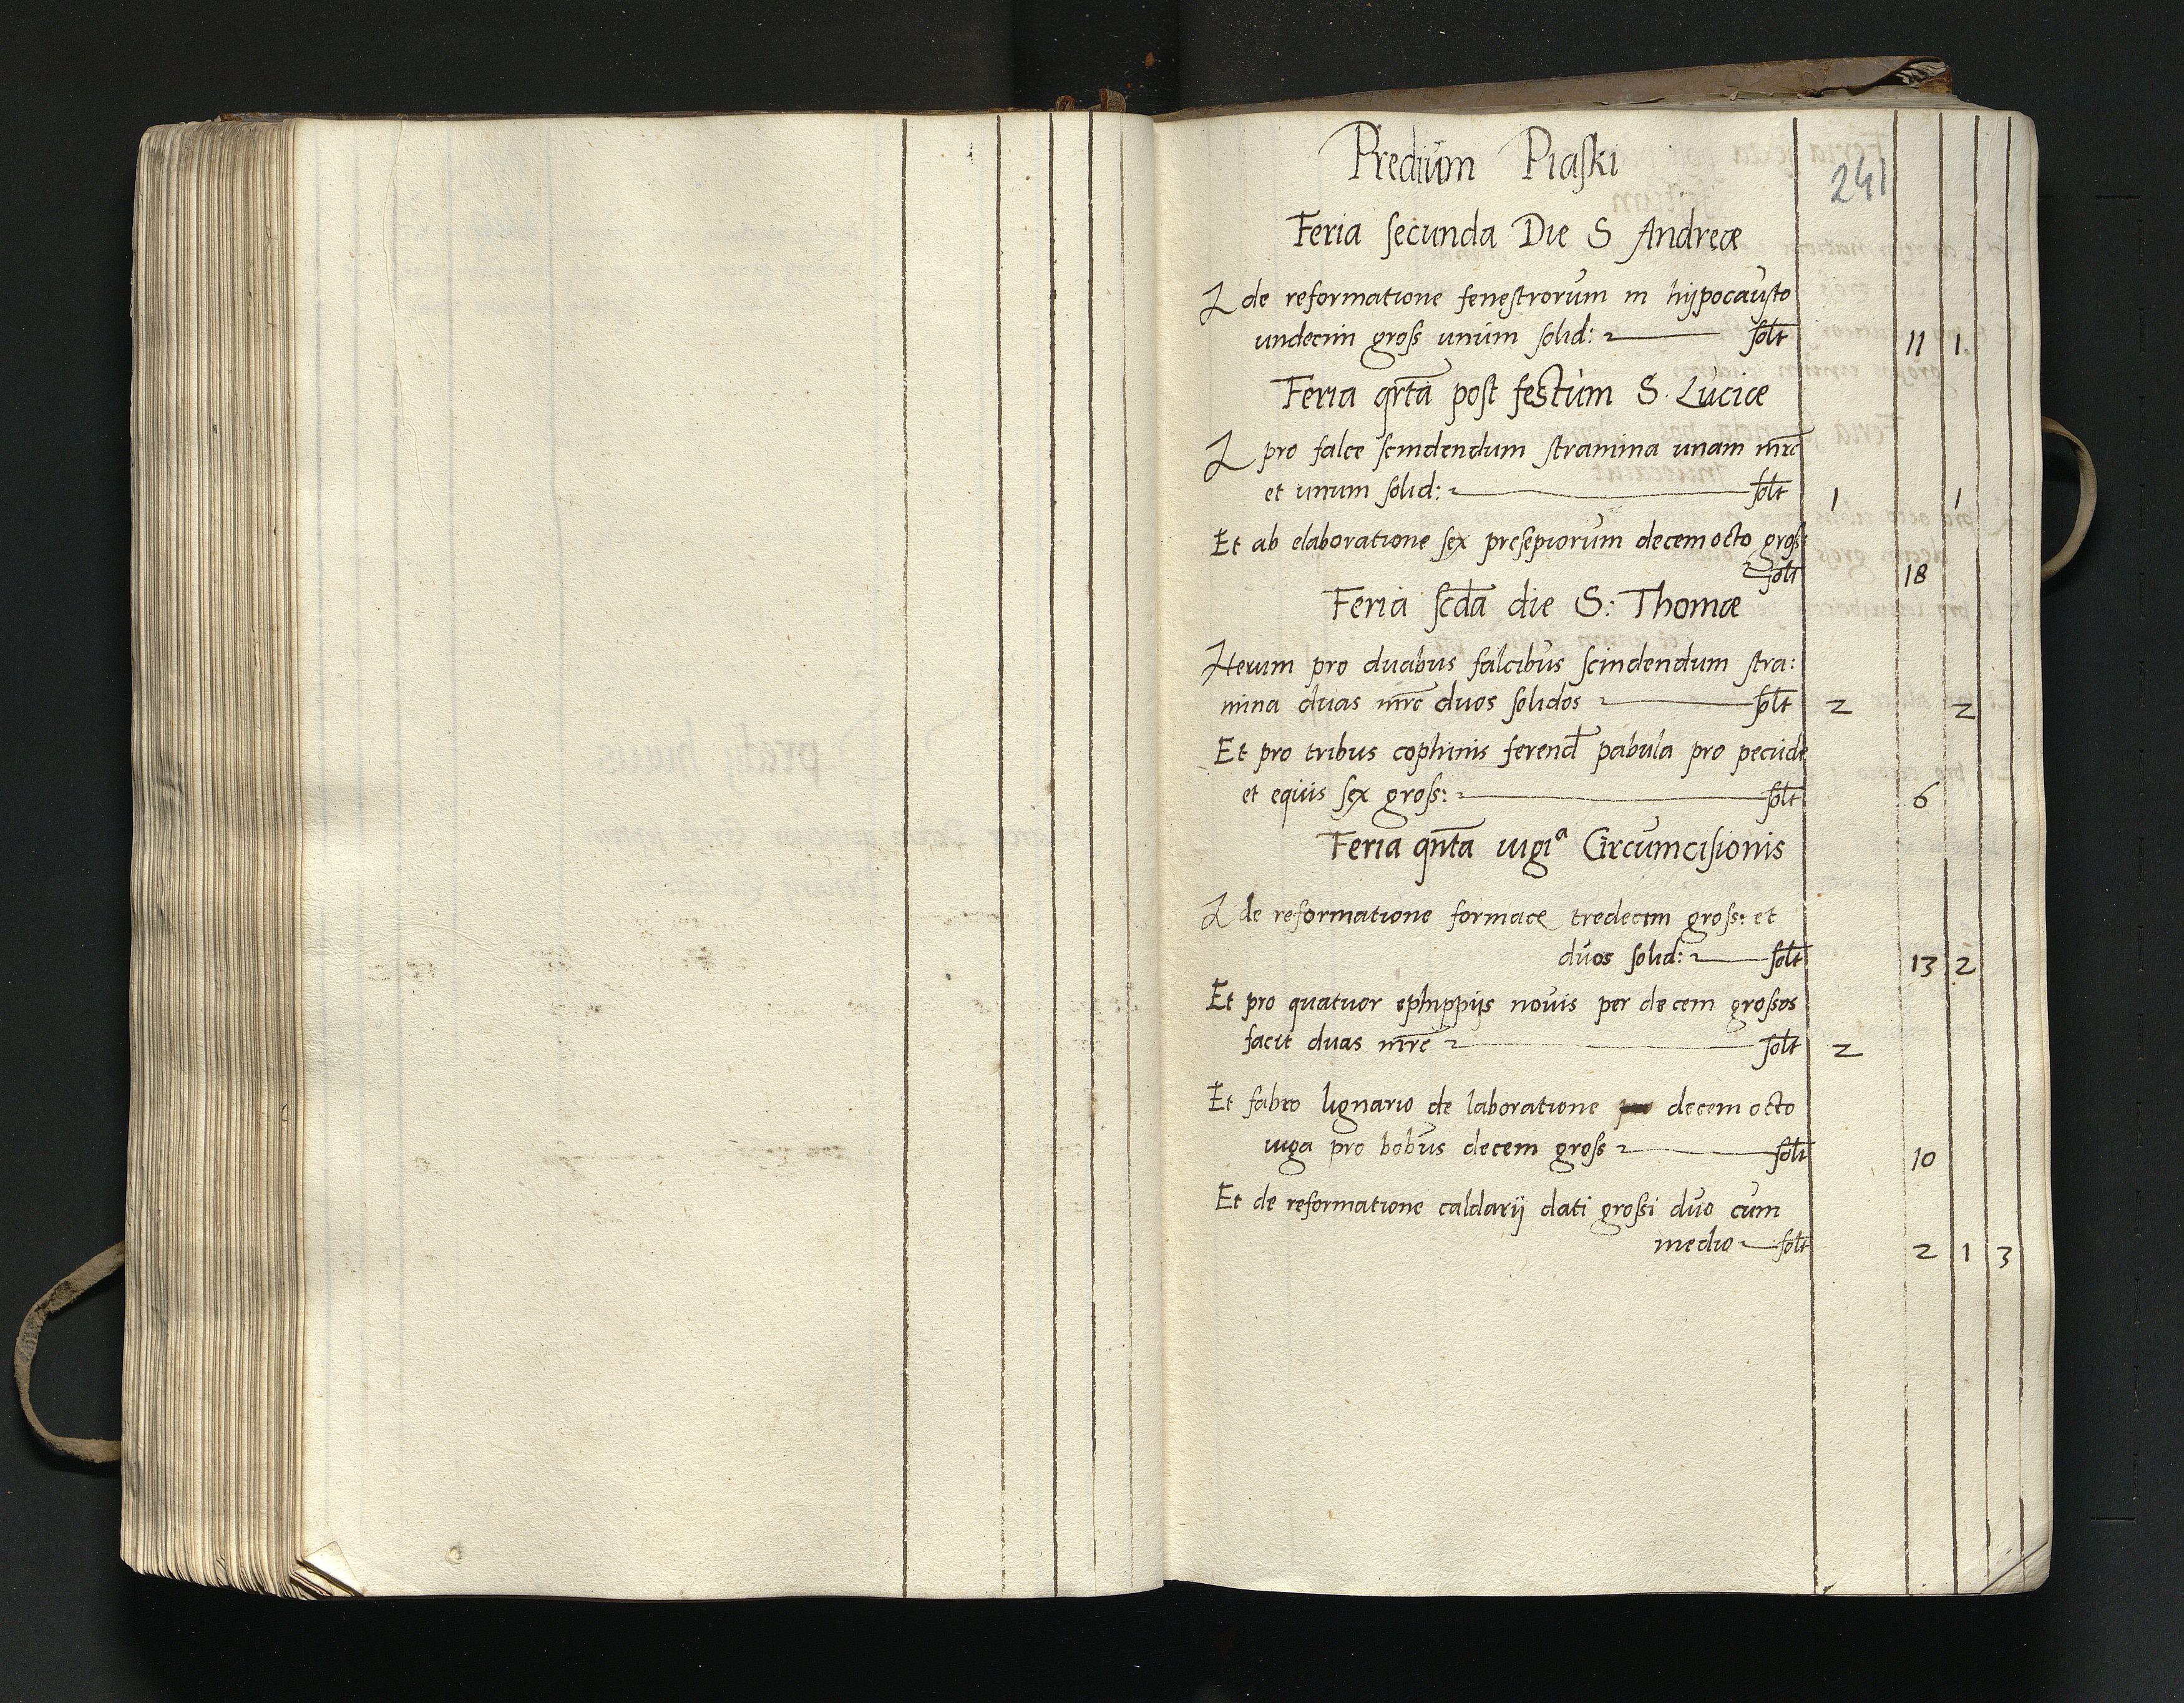 Predium Piaski
241
Feria secunda Die S Andreæ
It de reformatione fenestrorum in hypocausto
undecim gross unum solid: solt 11 1
Feria qrta post festum S. Luciæ
It pro falce scindendum stramina unam mrc
et unum solid: solt 1 1
Et ab elaboratione sex presepiorum decem octo gross
solt 18
Feria scda die S: Thomæ
Iterum pro duabus falcibus scindendum stra:
mina duas mrc duos solidos solt 2 2
Et pro tribus cophinis ferend pabula pro pecude
et equis sex gross: solt 6
Feria qnta vigia Circumcisionis
It de reformatione formace tredecim gross: et
duos solid: solt 13 2
Et pro quatuor ephippijs novis per decem grossos
facit duas mrc solt 2
Et fabro lignario de laboratione decem octo
iuga pro bobus decem gross solt 10
Et de reformatione caldarij dati grossi duo cum
medio solt 2 1 3